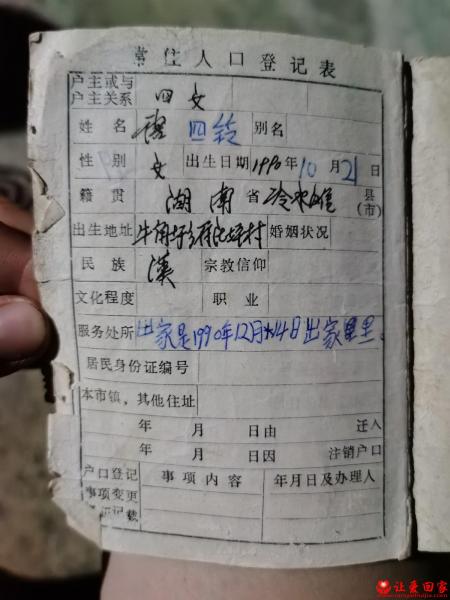 常住人口登记表
户主或与
户主关系 四女
姓名 四铃 别名
性别 女 出生日期 1990年10月21日
籍贯 湖南省 冷水 县(市)
出生地址 牛角 村 婚姻状况
民族 汉 宗教信仰
文化程度 职业
服务处所 出家是1990年12月14日出家
居民身份证编号
本市镇,其他住址
年 月 日由 迁入
年 月 日因 注销户口
户口登记
事项变更 事项内容 年月日及办理人
记载
让爱回家